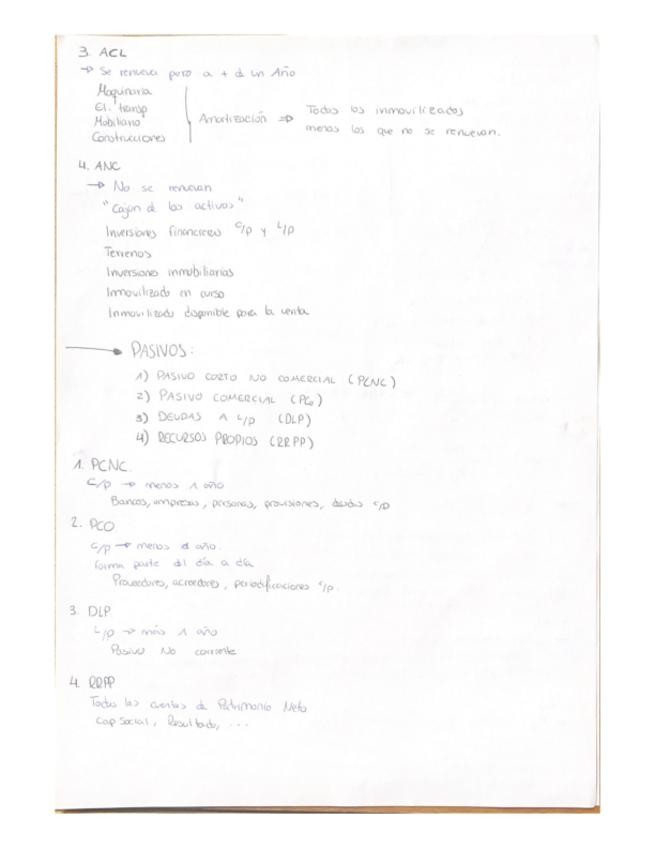 3. ACL
→ Se renueva pero a + d un Año
Maquinaria
El. transp
Mobiliario
Construcciones
Amortización ⇒ Todos los inmovilizados
menos los que no se renuevan.
4. ANC
→ No se renuevan
"Cajon de los activos"
Inversiones financieras C/p y L/p
Terrenos
Inversiones inmobiliarias
Inmovilizado en curso
Inmovilizado disponible para la venta
→ PASIVOS:
1) PASIVO CORTO NO COMERCIAL (PCNC)
2) PASIVO COMERCIAL (PCo)
3) DEUDAS A L/p (DLP)
4) RECURSOS PROPIOS (RRPP)
1. PCNC.
C/p → menos 1 año
Bancos, empresas, personas, provisiones, deudas C/p
2. PCO
C/p → menos año.
Forma parte dl día a día
Proveedores, acreedores, periodificaciones C/p.
3. DLP
L/p → más 1 año
Pasivo No corriente
4. RRPP
Todas las cuentas de Patrimonio Neto
Cap Social, Resultado, ...